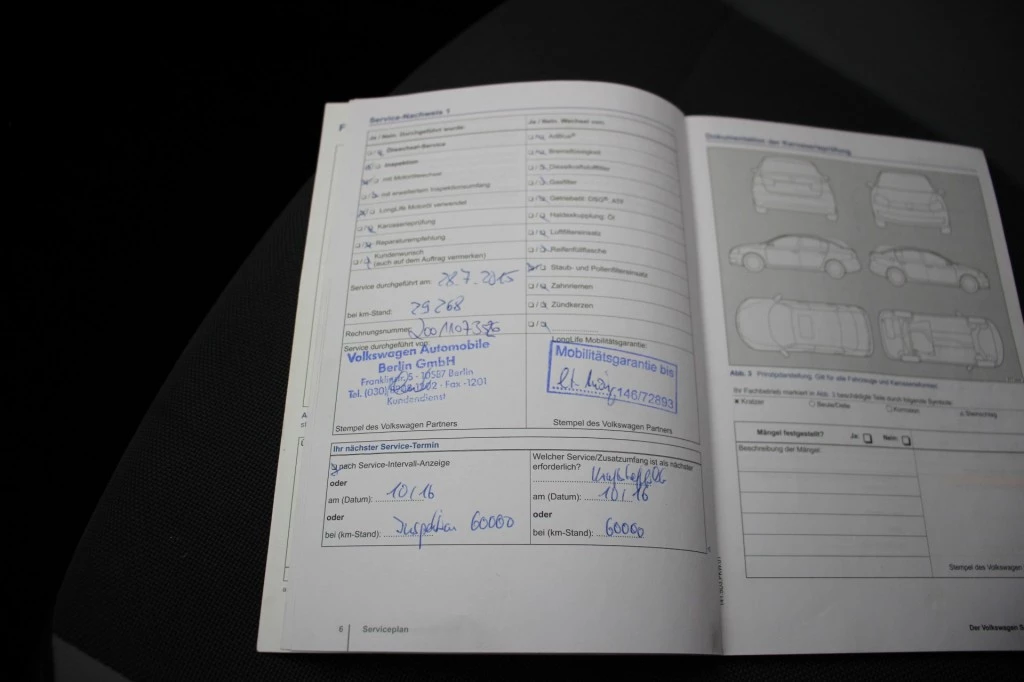 Service-Nachweis 1
Ja / Nein. Durchgeführt wurde:
Ölwechsel-Service
Inspektion
mit Motorölwechsel
mit erweitertem Inspektionsumfang
LongLife Motoröl verwendet
Karosserieprüfung
Reparaturempfehlung
Kundenwunsch
(auch auf dem Auftrag vermerken)
Service durchgeführt am: 28.7.2015
bei km-Stand: 29268
Rechnungsnummer:
Service durchgeführt von:
Volkswagen Automobile
Berlin GmbH
Franklinstr. 5 - 10587 Berlin
Tel. (030) -1202 · Fax -1201
Kundendienst
Stempel des Volkswagen Partners
Ja / Nein. Wechsel von:
AdBlue®
Bremsflüssigkeit
Dieselkraftstofffilter
Gasfilter
Getriebeöl: DSG®, ATF
Haldexkupplung: Öl
Luftfiltereinsatz
Reifenfüllflasche
Staub- und Pollenfiltereinsatz
Zahnriemen
Zündkerzen
LongLife Mobilitätsgarantie:
Mobilitätsgarantie bis
146/72893
Stempel des Volkswagen Partners
Ihr nächster Service-Termin
nach Service-Intervall-Anzeige
oder
am (Datum): 10/16
oder
bei (km-Stand): Inspektion 60000
Welcher Service/Zusatzumfang ist als nächster
erforderlich?
am (Datum): 10/16
oder
bei (km-Stand): 60000
6 Serviceplan
Dokumentation der Karosserieprüfung
Abb. 3 Prinzipdarstellung. Gilt für alle Fahrzeuge und Karosserieformen.
Ihr Fachbetrieb markiert in Abb. 3 beschädigte Teile durch folgende Symbole:
× Kratzer ○ Beule/Delle □ Korrosion △ Steinschlag
Mängel festgestellt? Ja: Nein:
Beschreibung der Mängel:
Stempel des Volkswagen
Der Volkswagen S